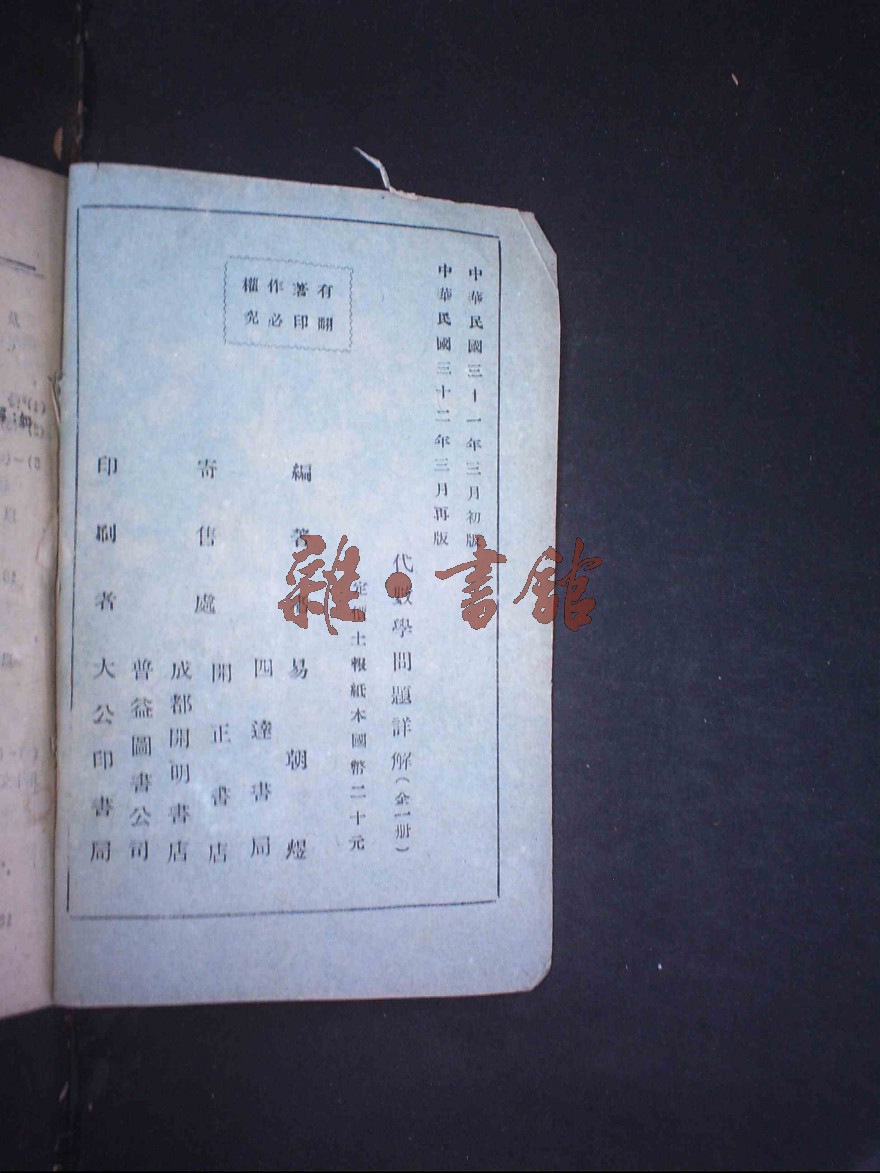 中華民國三十一年三月初版
中華民國三十二年三月再版
代數學問題詳解(全一册)
定價土報紙本國幣二十元
有著作權
翻印必究
編著者 易朝煜
寄售處
四達書局
開正書店
成都開明書店
普益圖書公司
印刷者 大公印書局
雜·書館